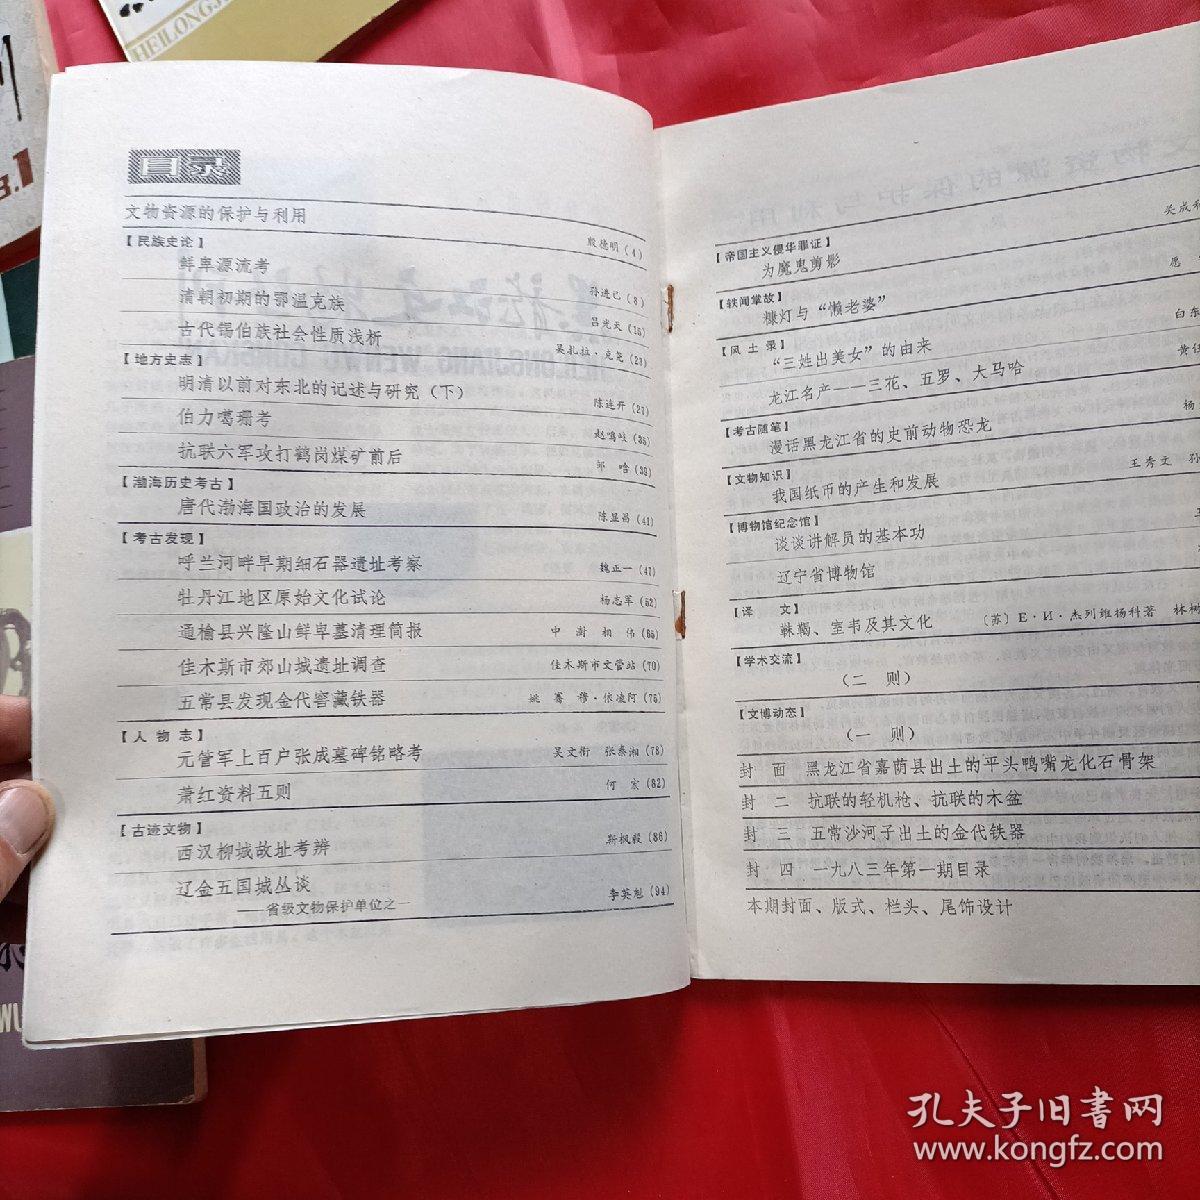 HEILONGJ
目录
文物资源的保护与利用
殷德明(4)
【民族史论】
鲜卑源流考
孙进己(8)
清朝初期的鄂温克族
吕光天(15)
古代锡伯族社会性质浅析
吴扎拉·克尧(23)
【地方史志】
明清以前对东北的记述与研究(下)
陈连开(27)
伯力噶珊考
赵鸣岐(35)
抗联六军攻打鹤岗煤矿前后
邹 晗(39)
【渤海历史考古】
唐代渤海国政治的发展
陈显昌(41)
【考古发现】
呼兰河畔早期细石器遗址考察
魏正一(47)
牡丹江地区原始文化试论
杨志军(52)
通榆县兴隆山鲜卑墓清理简报
申澍 相伟(65)
佳木斯市郊山城遗址调查
佳木斯市文管站(70)
五常县发现金代窖藏铁器
姚骞 穆·依凌阿(75)
【人物志】
元管军上百户张成墓碑铭略考
吴文衔 张泰湘(78)
萧红资料五则
何宏(82)
【古迹文物】
西汉柳城故址考辨
靳枫毅(86)
辽金五国城丛谈
——省级文物保护单位之一
李英魁(94)
【帝国主义侵华罪证】
为魔鬼剪影
关成和
【轶闻掌故】
糠灯与“懒老婆”
【风土录】
“三姓出美女”的由来
白东
龙江名产——三花、五罗、大马哈
黄任
【考古随笔】
漫话黑龙江省的史前动物恐龙
杨
【文物知识】
我国纸币的产生和发展
王秀文 孙
【博物馆纪念馆】
谈谈讲解员的基本功
辽宁省博物馆
【译 文】
靺鞨、室韦及其文化
(苏)E·И·杰列维扬科著 林树
【学术交流】
(二 则)
【文博动态】
(一 则)
封 面 黑龙江省嘉荫县出土的平头鸭嘴龙化石骨架
封 二 抗联的轻机枪、抗联的木盆
封 三 五常沙河子出土的金代铁器
封 四 一九八三年第一期目录
本期封面、版式、栏头、尾饰设计
孔夫子旧书网
www.kongfz.com